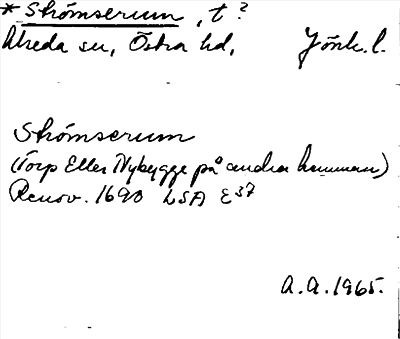 * Strömserum, t?
Alseda sn, Östra hd, Jönk. l.
Strömserum
(Torp Eller Nybygge på andra hemman)
Renov. 1690 LSA E37
A.A. 1965.